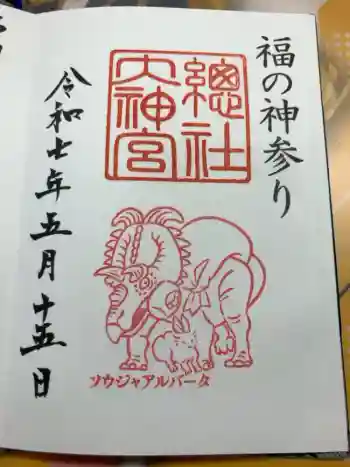 福の神参り
總社
大神宮
令和七年五月十五日
ソウジャアルバータ